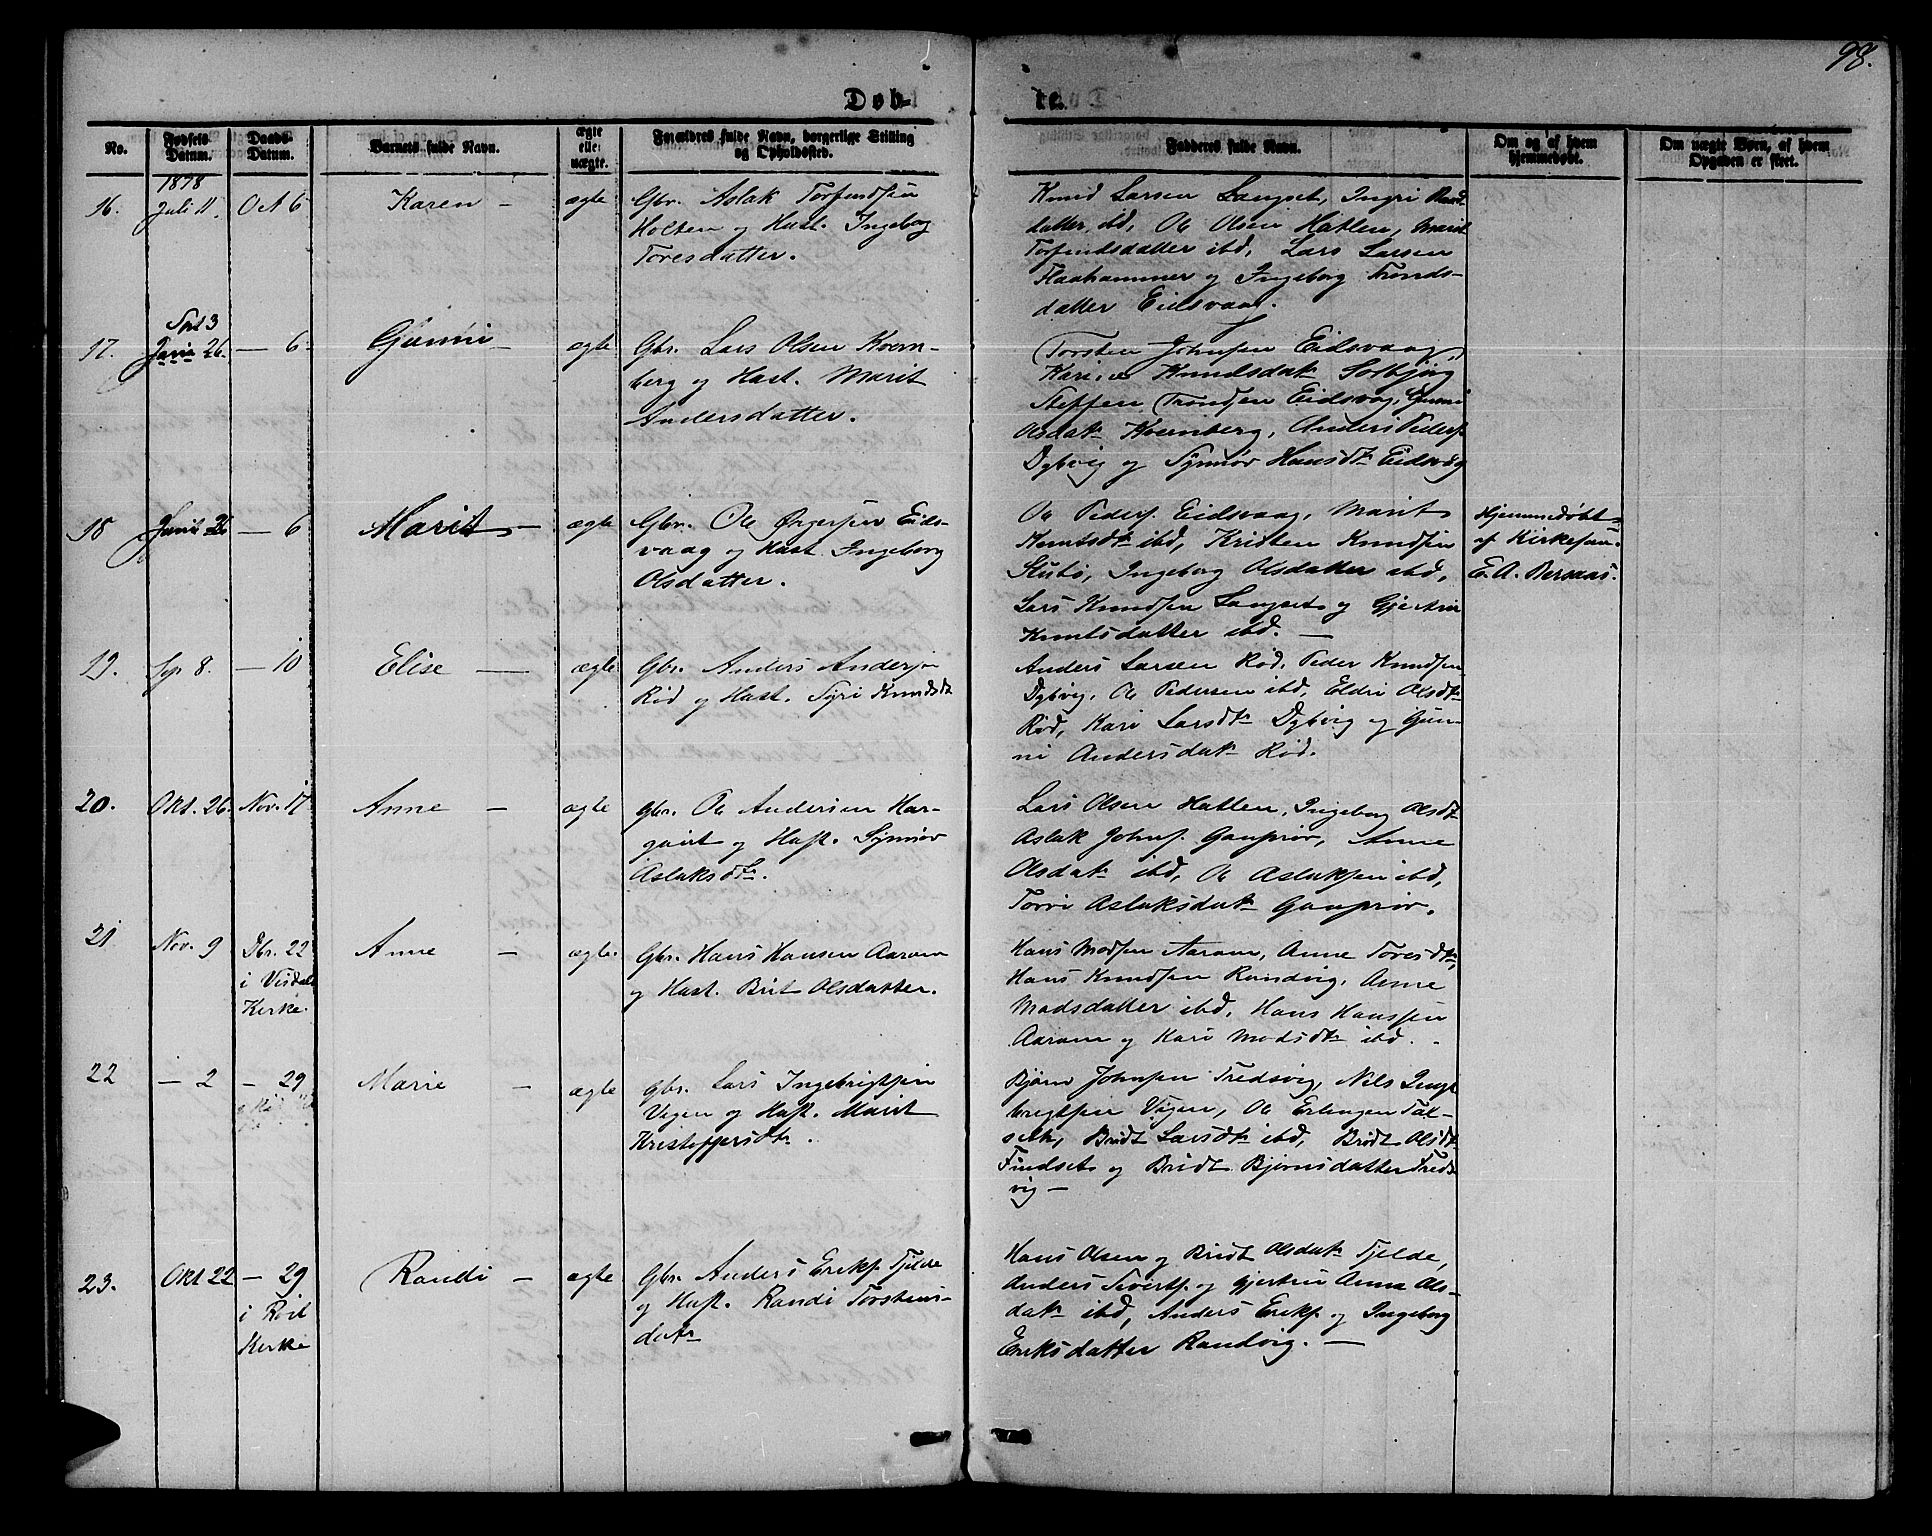 98.
Døb- te.
No.
Fødsels Datum.
Daabs- Datum.
Barnets fulde Navn.
ægte eller uægte.
Forældres fulde Navn, borgerlige Stilling
og Opholdssted.
Fadderes fulde Navn.
Om og af hvem
hjemmedøbt.
Om uægte Børn, af hvem
Opgaven er skeet.
1878
16. Juli 11. Oct 6 Karen - ægte
Gbr. Aslak Torfindsen
Holten og Hust. Ingeborg
Toresdatter.
Knud Larsen Langset, Ingri
datter ibd, Ole Olsen Hatlen, Marit
Torfindsdatter ibd, Lars Larsen
Flaahammer og Ingeborg Tronds-
datter Eidsvaag.
17. 26. — 6. Gunni - ægte
Gbr. Lars Olsen Kvern-
berg og Hust. Marit
Andersdatter.
Torsten Johnsen Eidsvaag,
Kari Knudsdatr Solbjørg
Steffen Trondsen Eidsvag, Gunni
Olsdatr Kvernberg, Anders Peders.
Dybvig og Synnøv Hansdtr Eidsvåg
18 — 6 Marit - ægte
Gbr. Ole Eids-
vaag og Hust. Ingeborg
Olsdatter.
Ole Peders. Eidsvaag, Marit
Knutsdtr ibd, Kristen Knudsen
Stubø, Ingeborg Olsdatter ibd,
Lars Knudsen Langset og Gjertru
Knutsdatter ibd. —
Hjemmedøbt
af Kirkesan.
E. A. Bersaas.
19. Sp 8. — 10 Elise — ægte
Gbr. Anders Anders.
Rød og Hust. Syri Knudsdtr
Anders Larsen Rød, Peder Knudsen
Dybvig, Ole Pedersen ibd, Eldri Olsdtr
Rød, Kari Larsdtr Dybvig og Gun-
ni Andersdatr Rød.
20. Okt. 26. Nov. 17 Anne — ægte
gbr. Ole Andersen Har-
gaut og Hust. Synnøv
Aslaksdtr.
Lars Olsen Hatlen, Ingeborg Olsdtr
Aslak Johns. Gauprør, Anne
Olsdatr ibd, Ole Aslaksen ibd,
Torri Aslaksdatr Gauprør.
21 Nov. 9 Dbr. 22 Anne — ægte.
i Visdals
Kirke.
Gbr. Hans Hansen Aaram
og Hust. Brit Olsdatter.
Hans Madsen Aaram, Anne Toresdtr,
Hans Knudsen Randvig, Anne
Madsdatter ibd, Hans Hanssen
Aaram og Kari Madsdtr ibd.
22 — 2 — 29 Marie — ægte
gbr. Lars Ingebrigtsen
Vigen og Hust. Marit
Kristoffersdtr.
Bjørn Johnsen Tredsvig, Nils Inge
brigtsen Vigen, Ole Erlingsen Tal-
set, Bridt Larsdtr ibd, Brødt Olsdtr
Findset og Bridt Bjørnsdatter Treds
vig —
23. Okt 22 — 29 Randi — ægte
i Rød
Kirke
Gbr. Anders Eriks. Tjelde
og Hust. Randi Torstens-
datr
Hans Olsen og Bridt Olsdatr Tjelde,
Anders Siverts. og Gjertru Anna Ols-
datr ibd, Anders Eriks. og Ingeborg
Eriksdatter Randvig. —